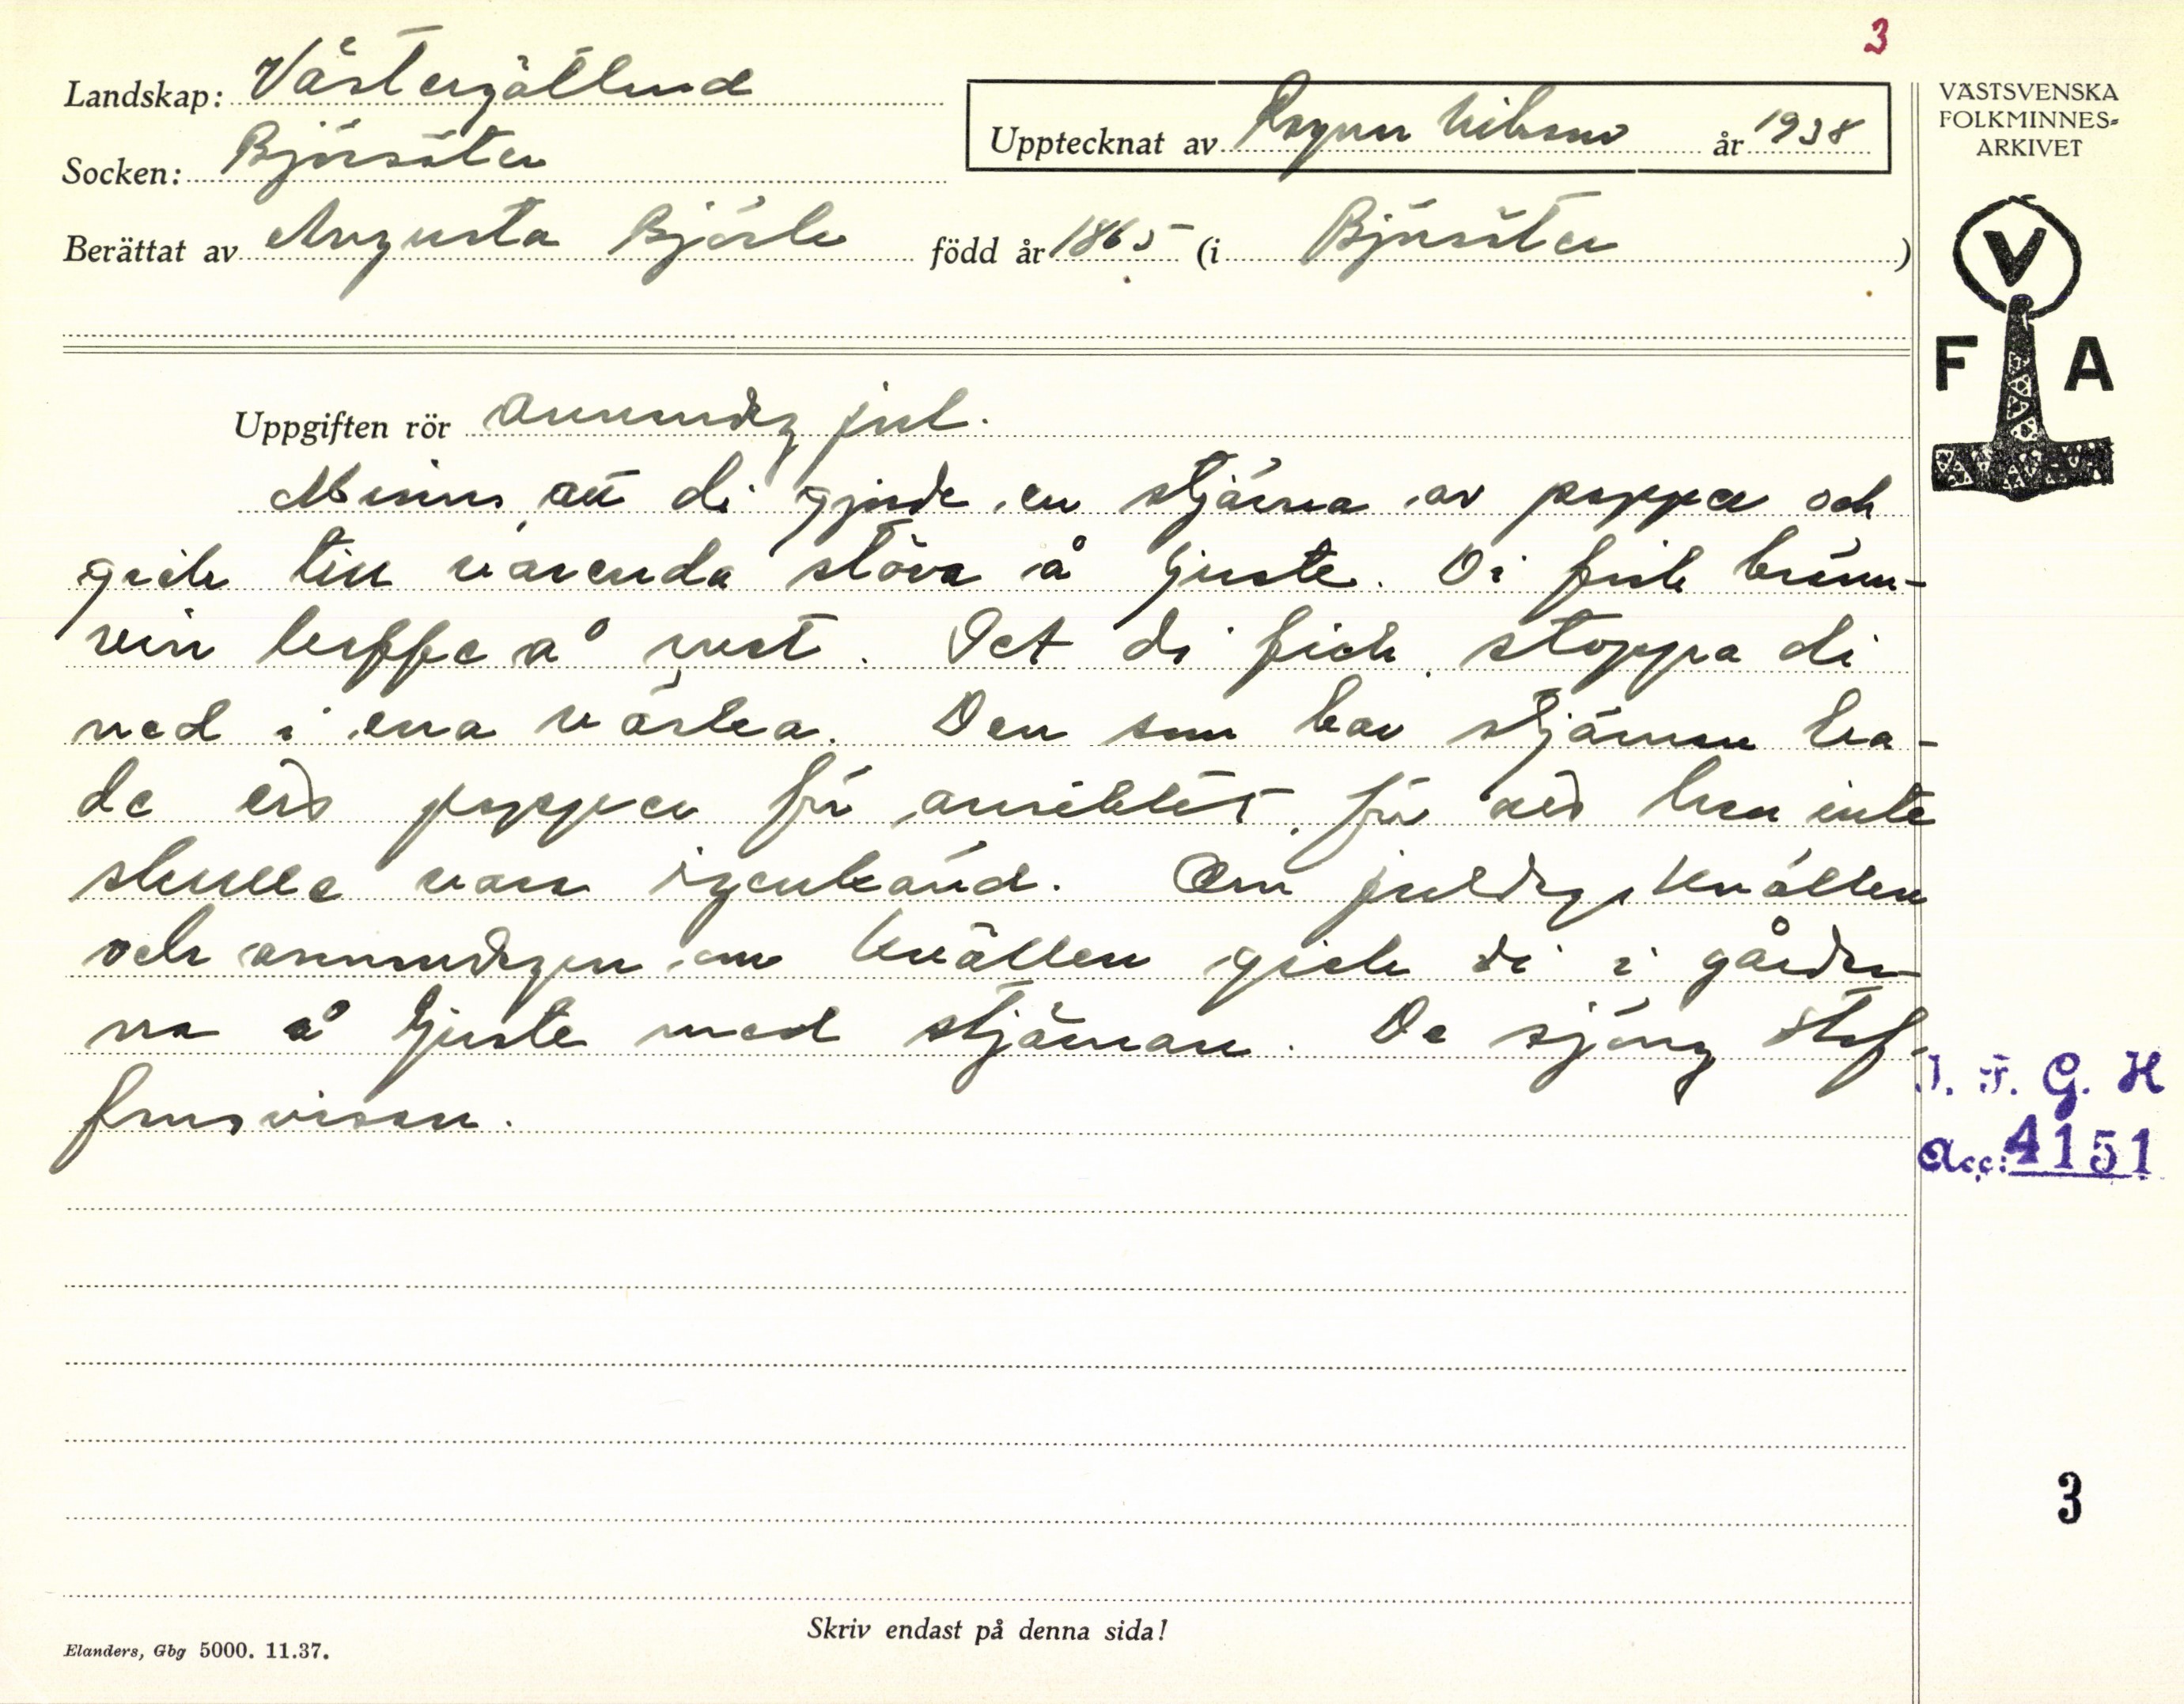 3
Landskap: Västergötland
Socken: Björsäter
Upptecknat av Ragnar Nilsson år 1938
Berättat av Augusta Björk född år 1865 (i Björsäter)
VÄSTSVENSKA
FOLKMINNES-
ARKIVET
V
F A
Uppgiften rör annandag jul.
Minns att di gjorde en stjärna av papper och
gick till varenda stöva å ljuste. Di fick bränn-
vin kaffe å ost. Det di fick stoppa di
ned i ena väska. Den som bar stjärnan ha-
de ett papper för ansiktet, för att han inte
skulle vara igenkänd. Om juldags kvällen
och annandagen om kvällen gick di i gårdar-
na å ljuste med stjärnan. De sjöng Stef-
fansvisan.
I. F. G. H
Acc: 4151
3
Skriv endast på denna sida!
Elanders, Gbg 5000. 11.37.